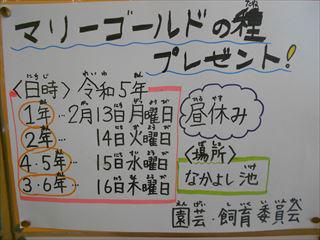 マリーゴールドの種
プレゼント!
〈日時〉令和5年
1年…2月13日月曜日
2年…14日火曜日
4・5年…15日水曜日
3・6年…16日木曜日
昼休み
〈場所〉
なかよし池
園芸・飼育委員会